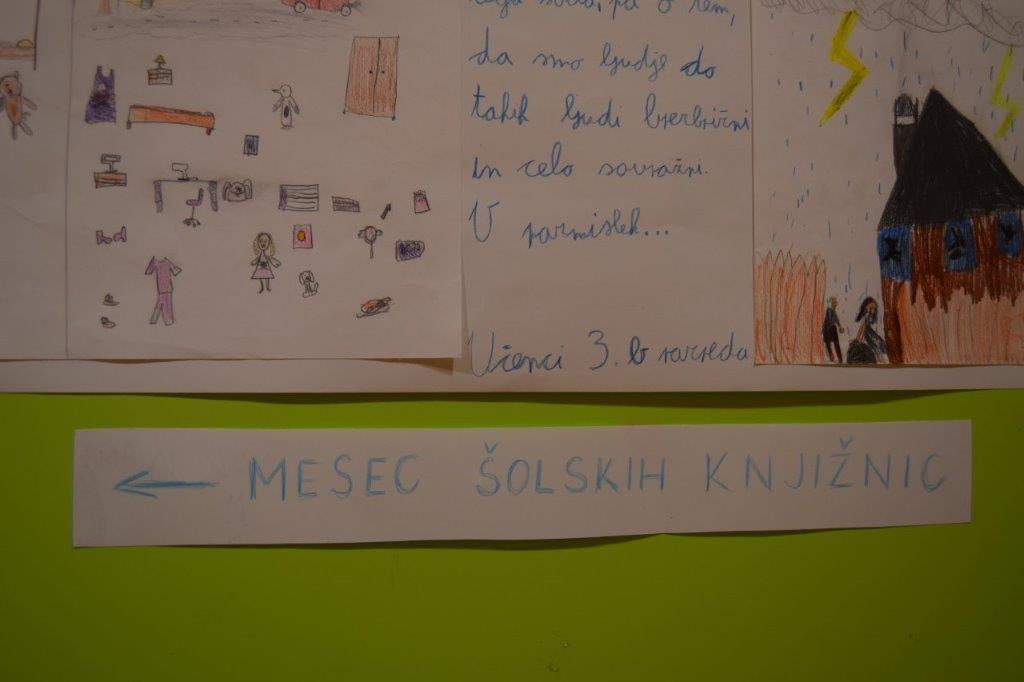 pa o tem,
da smo ljudje do
takih ljudi brezbrižni
in celo sovražni.
V razmislek...
Učenci 3. b razreda
← MESEC ŠOLSKIH KNJIŽNIC